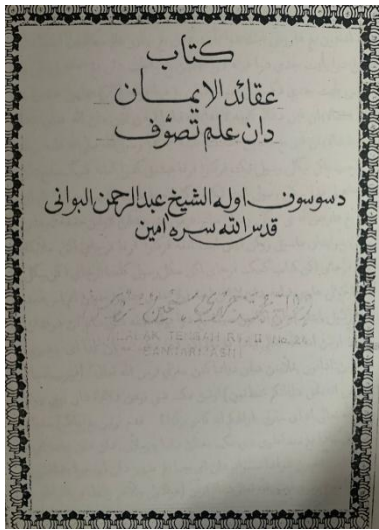 كتاب
عقائد الايمان
دان علم تصوّف
دسوسون اوله الشيخ عبدالرحمن البواني
قدس الله سره امين